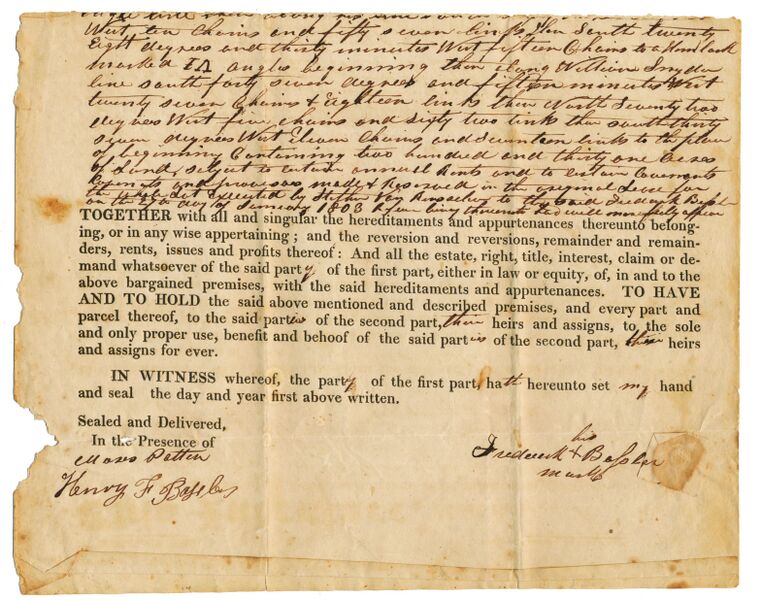 West ten Chains and fifty seven links then South twenty
Eight degrees and thirty minutes West fifteen Chains to a Hemlock
marked angles beginning then along William Snyder
line south forty seven degrees and fifteen minutes West
twenty seven Chains & Eighteen links then North Seventy two
degrees West five chains and Sixty two links then south thirty
seven degrees West Eleven Chains and Seventeen links to the place
of beginning Containing two hundred and thirty one Acres
of Land, subject to certain annual Rents and to certain Covenants
and provisos made & Reserved in the original Lease for
Executed by Stephen Van Rensselaer to the said Frederick Bassler
on the day of January 1803
TOGETHER with all and singular the hereditaments and appurtenances thereunto belong-
ing, or in any wise appertaining ; and the reversion and reversions, remainder and remain-
ders, rents, issues and profits thereof : And all the estate, right, title, interest, claim or de-
mand whatsoever of the said party of the first part, either in law or equity, of, in and to the
above bargained premises, with the said hereditaments and appurtenances. TO HAVE
AND TO HOLD the said above mentioned and described premises, and every part and
parcel thereof, to the said parties of the second part, their heirs and assigns, to the sole
and only proper use, benefit and behoof of the said parties of the second part, their heirs
and assigns for ever.
IN WITNESS whereof, the party of the first part, hath hereunto set my hand
and seal the day and year first above written.
Sealed and Delivered,
In the Presence of
Moses Patten
Henry F Bassler
his
Frederick + Bassler
mark